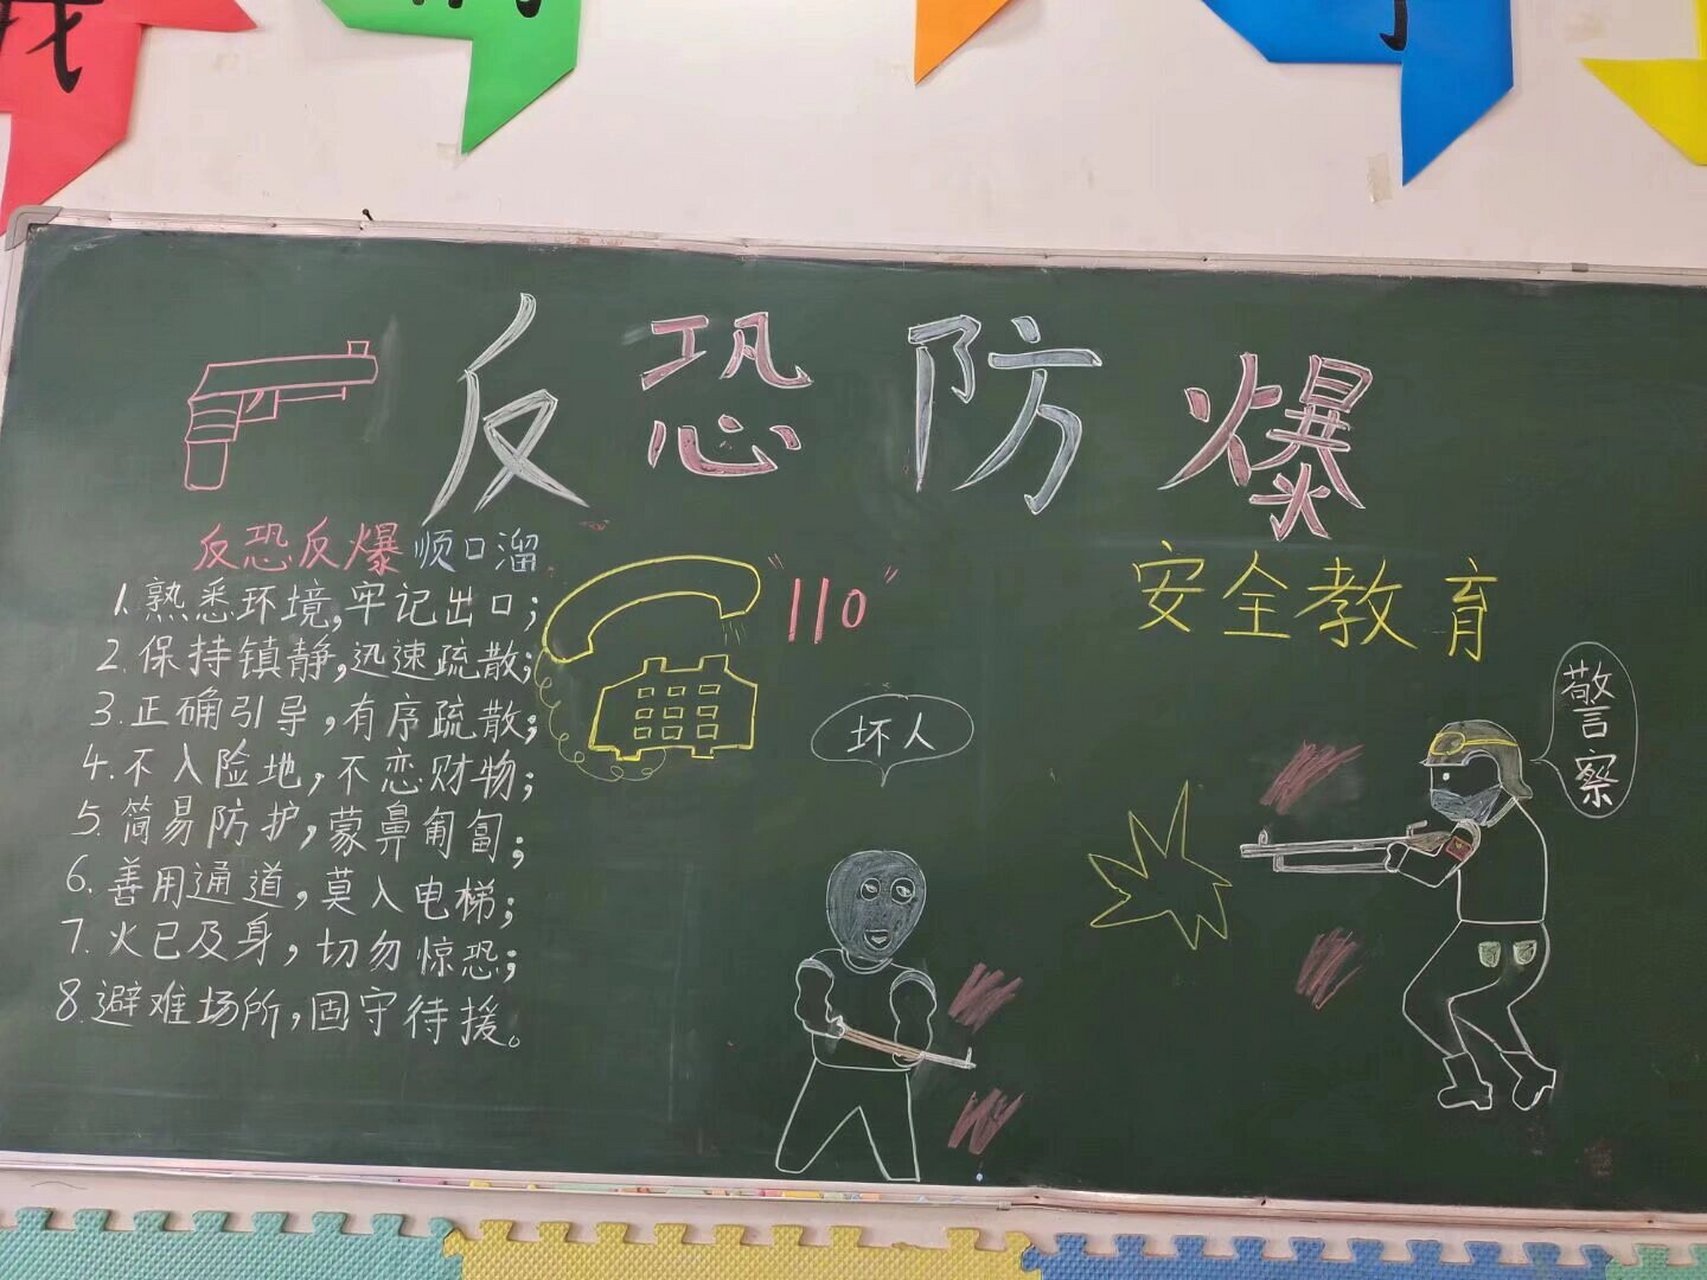 我
反恐防爆
反恐反爆顺口溜
1.熟悉环境,牢记出口;
2.保持镇静,迅速疏散;
3.正确引导,有序疏散;
4.不入险地,不恋财物;
5.简易防护,蒙鼻匍匐;
6.善用通道,莫入电梯;
7.火已及身,切勿惊恐;
8.避难场所,固守待援。
"110"
安全教育
坏人
警察